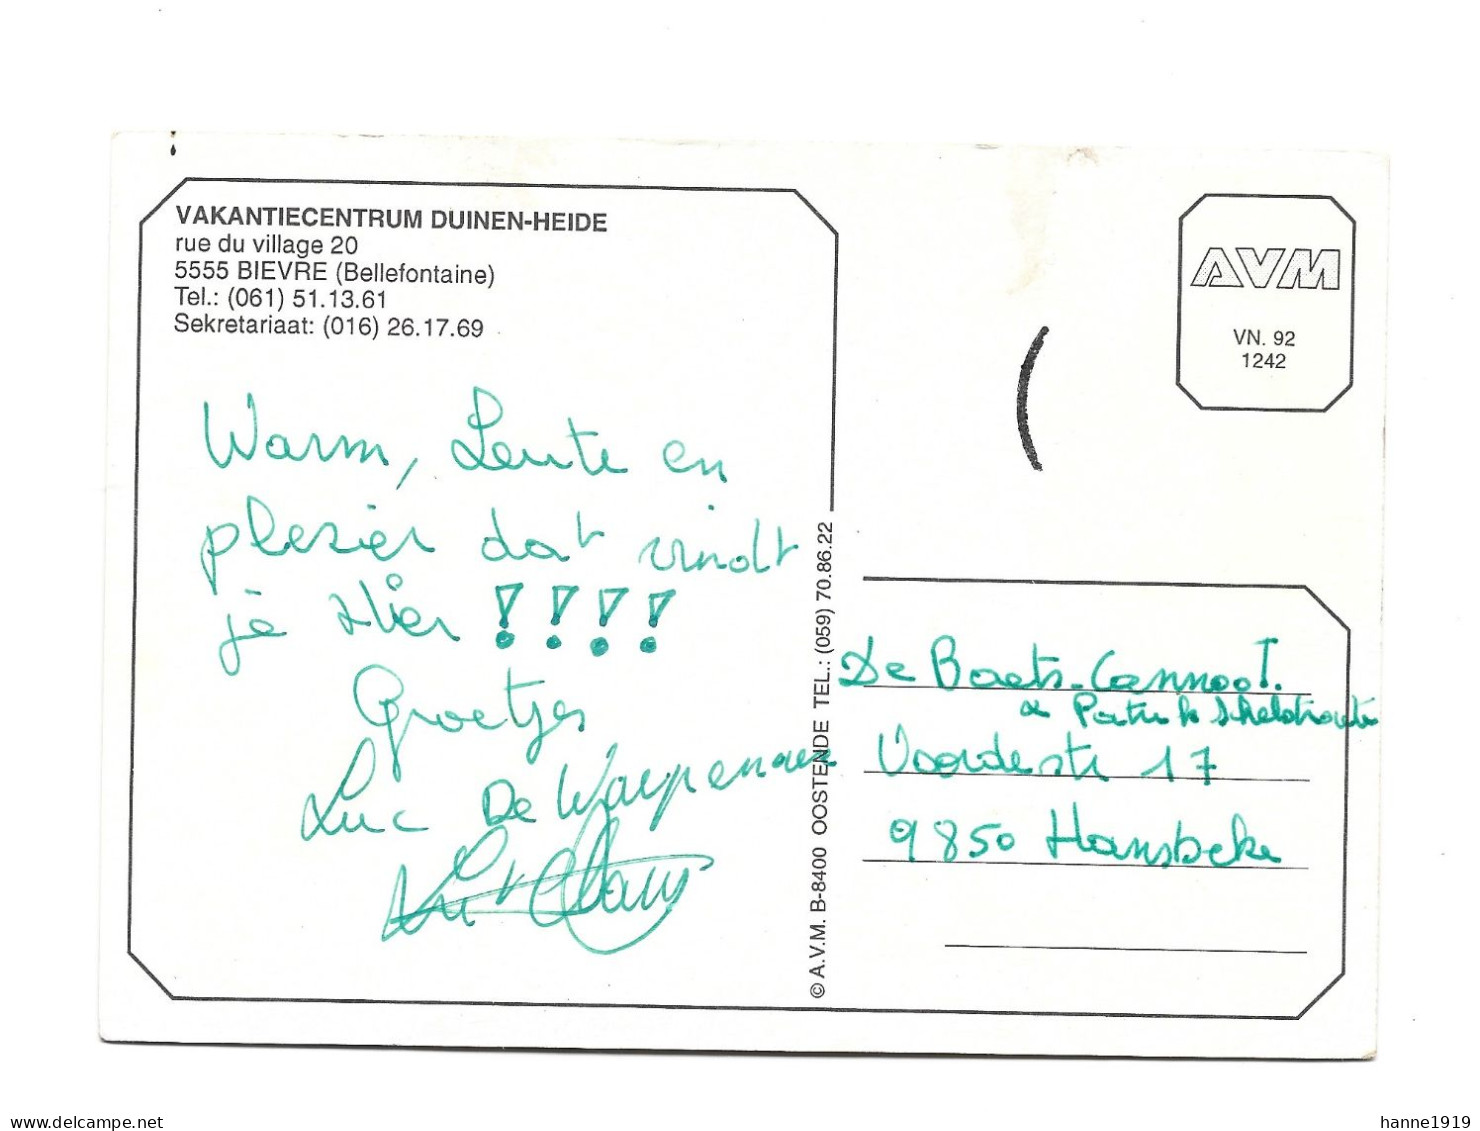 VAKANTIECENTRUM DUINEN-HEIDE
rue du village 20
5555 BIEVRE (Bellefontaine)
Tel.: (061) 51.13.61
Sekretariaat: (016) 26.17.69
Warm, Leute en
plezier dat vindt
je hier !!!!
Groetjes
Luc De Waepenaere
© A.V.M. B-8400 OOSTENDE TEL.: (059) 70.86.22
AVM
VN. 92
1242
De Baets-Cannoot.
Voordestr 17
9850 Hansbeke
delcampe.net
hanne1919